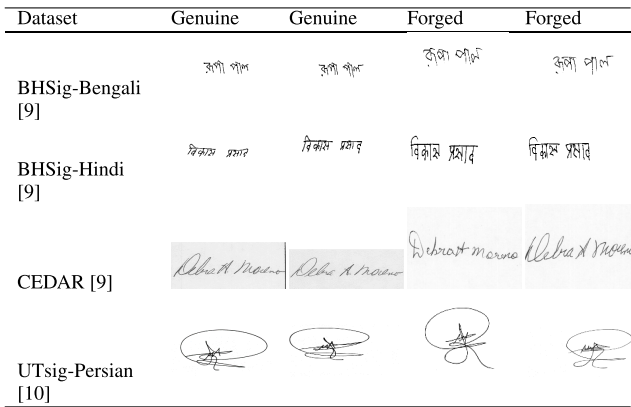 Dataset Genuine Genuine Forged Forged
BHSig-Bengali [9] রূপা পাল রূপা পাল রূপা পাল রূপা পাল
BHSig-Hindi [9] विकास प्रसाद विकास प्रसाद विकास प्रसाद विकास प्रसाद
CEDAR [9] Debra A Moreno Debra A Moreno Debra A Moreno Debra A Moreno
UTsig-Persian [10]